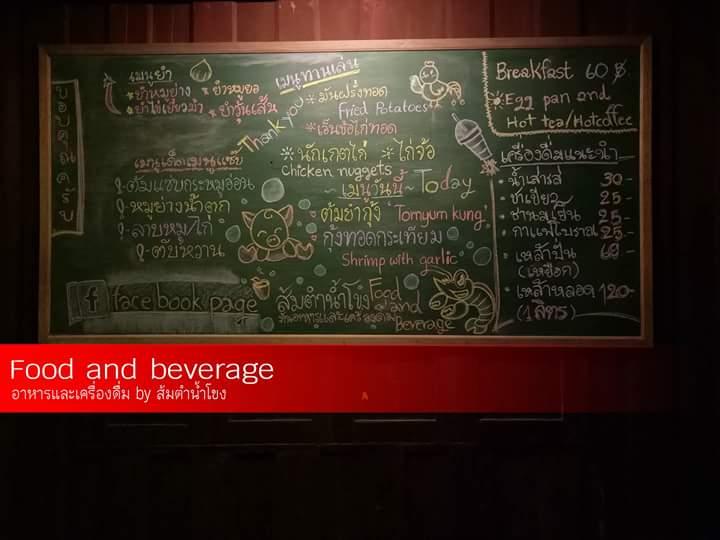 ขอบคุณครับ
เมนูยำ
*ยำหมูย่าง *ยำหมูยอ
*ยำไข่เยี่ยวม้า *ยำวุ้นเส้น
เมนูเด็ดเมนูแซ่บ
ต้มแซ่บกระหมูอ่อน
หมูย่างน้ำตก
ลาบหมู/ไก่
ตับหวาน
f facebook page
Thank you
เมนูทานเล่น
*มันฝรั่งทอด
Fried Potatoes
*เอ็นข้อไก่ทอด
*นักเกตไก่ *ไก่จ๊อ
chicken nuggets
~เมนูวันนี้~ Today
ต้มยำกุ้ง "Tomyum kung"
กุ้งทอดกระเทียม
Shrimp with garlic
ส้มตำน้ำโขง Food and beverage
ร้านอาหารและเครื่องดื่ม
Breakfast 60 ฿
*Egg pan and
Hot tea/Hotcoffee
เครื่องดื่มแนะนำ
น้ำเสารส 30-
ชาเขียว 25-
ชานมเย็น 25-
กาแฟโบราณ 25-
เหล้าปั่น 69-
(เหยือก)
เหล้าหลอด 120-
(1 ลิตร)
Food and beverage
อาหารและเครื่องดื่ม by ส้มตำน้ำโขง